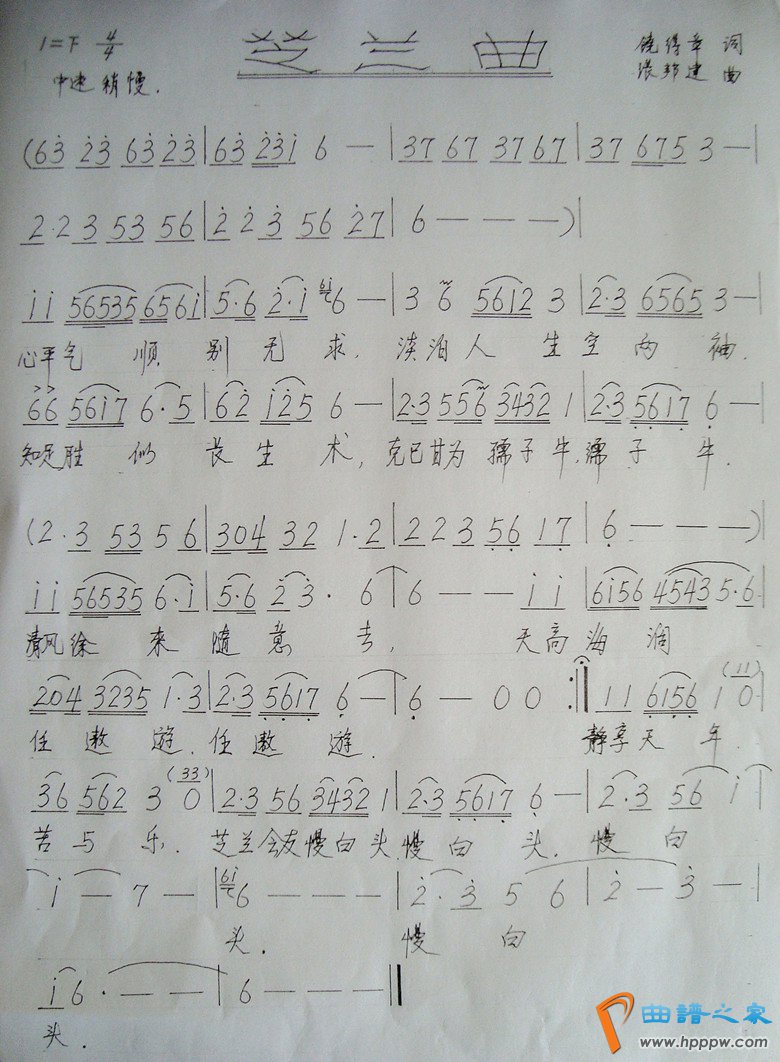 芝兰曲
1=F 4/4
中速稍慢.
饶得章 词
张邦建 曲
(63̇ 2̇3̇ 63̇ 2̇3̇ | 63̇ 2̇3̇1̇ 6 — | 37 67 37 67 | 37 675 3 — |
2·23 53 56 | 2̇ 2̇ 3̇ 56 2̇7 | 6 — — —) |
1̇ 1̇ 56535 6561̇ | 5·6 2̇·1̇ 61̇6 — | 3 6 5612 3 | 2·3 6565 3 — |
心平气 顺 别 无 求, 淡泊人 生 空 两 袖.
66 561̇7 6·5 | 62̇ 1̇2̇5 6 — | 2·3 556 3432 1 | 2·3 5617 6 — |
知足胜 似 长 生 术, 克己甘为 孺子牛, 孺 子 牛.
(2·3 53 5 6 | 304 32 1·2 | 2 2 3 56 17 | 6 — — —) |
1̇ 1̇ 56535 6·1̇ | 5·6 2̇ 3̇· 6 | 6 — — 1̇ 1̇ | 61̇56 4543 5·6 |
清风徐 来 随 意 去, 天高海 阔
204 3235 1·3 | 2·3 5617 6 — | 6 — 0 0 :‖ 1 1 6156 1 0 (11) |
任 遨 游, 任 遨 游. 静享天 年.
36 562 3 0 (33) | 2·3 56 3432 1 | 2·3 5617 6 — | 2·3 56 1̇ |
苦 与 乐. 芝兰会友慢白头, 慢 白 头. 慢 白
1̇ — 7 — | 61̇6 — — — | 2̇·3̇ 5 6 | 2̇ — 3̇ — |
头. 慢 白
1̇6 · — — | 6 — — — ‖
头.
曲譜之家
www.hpppw.com